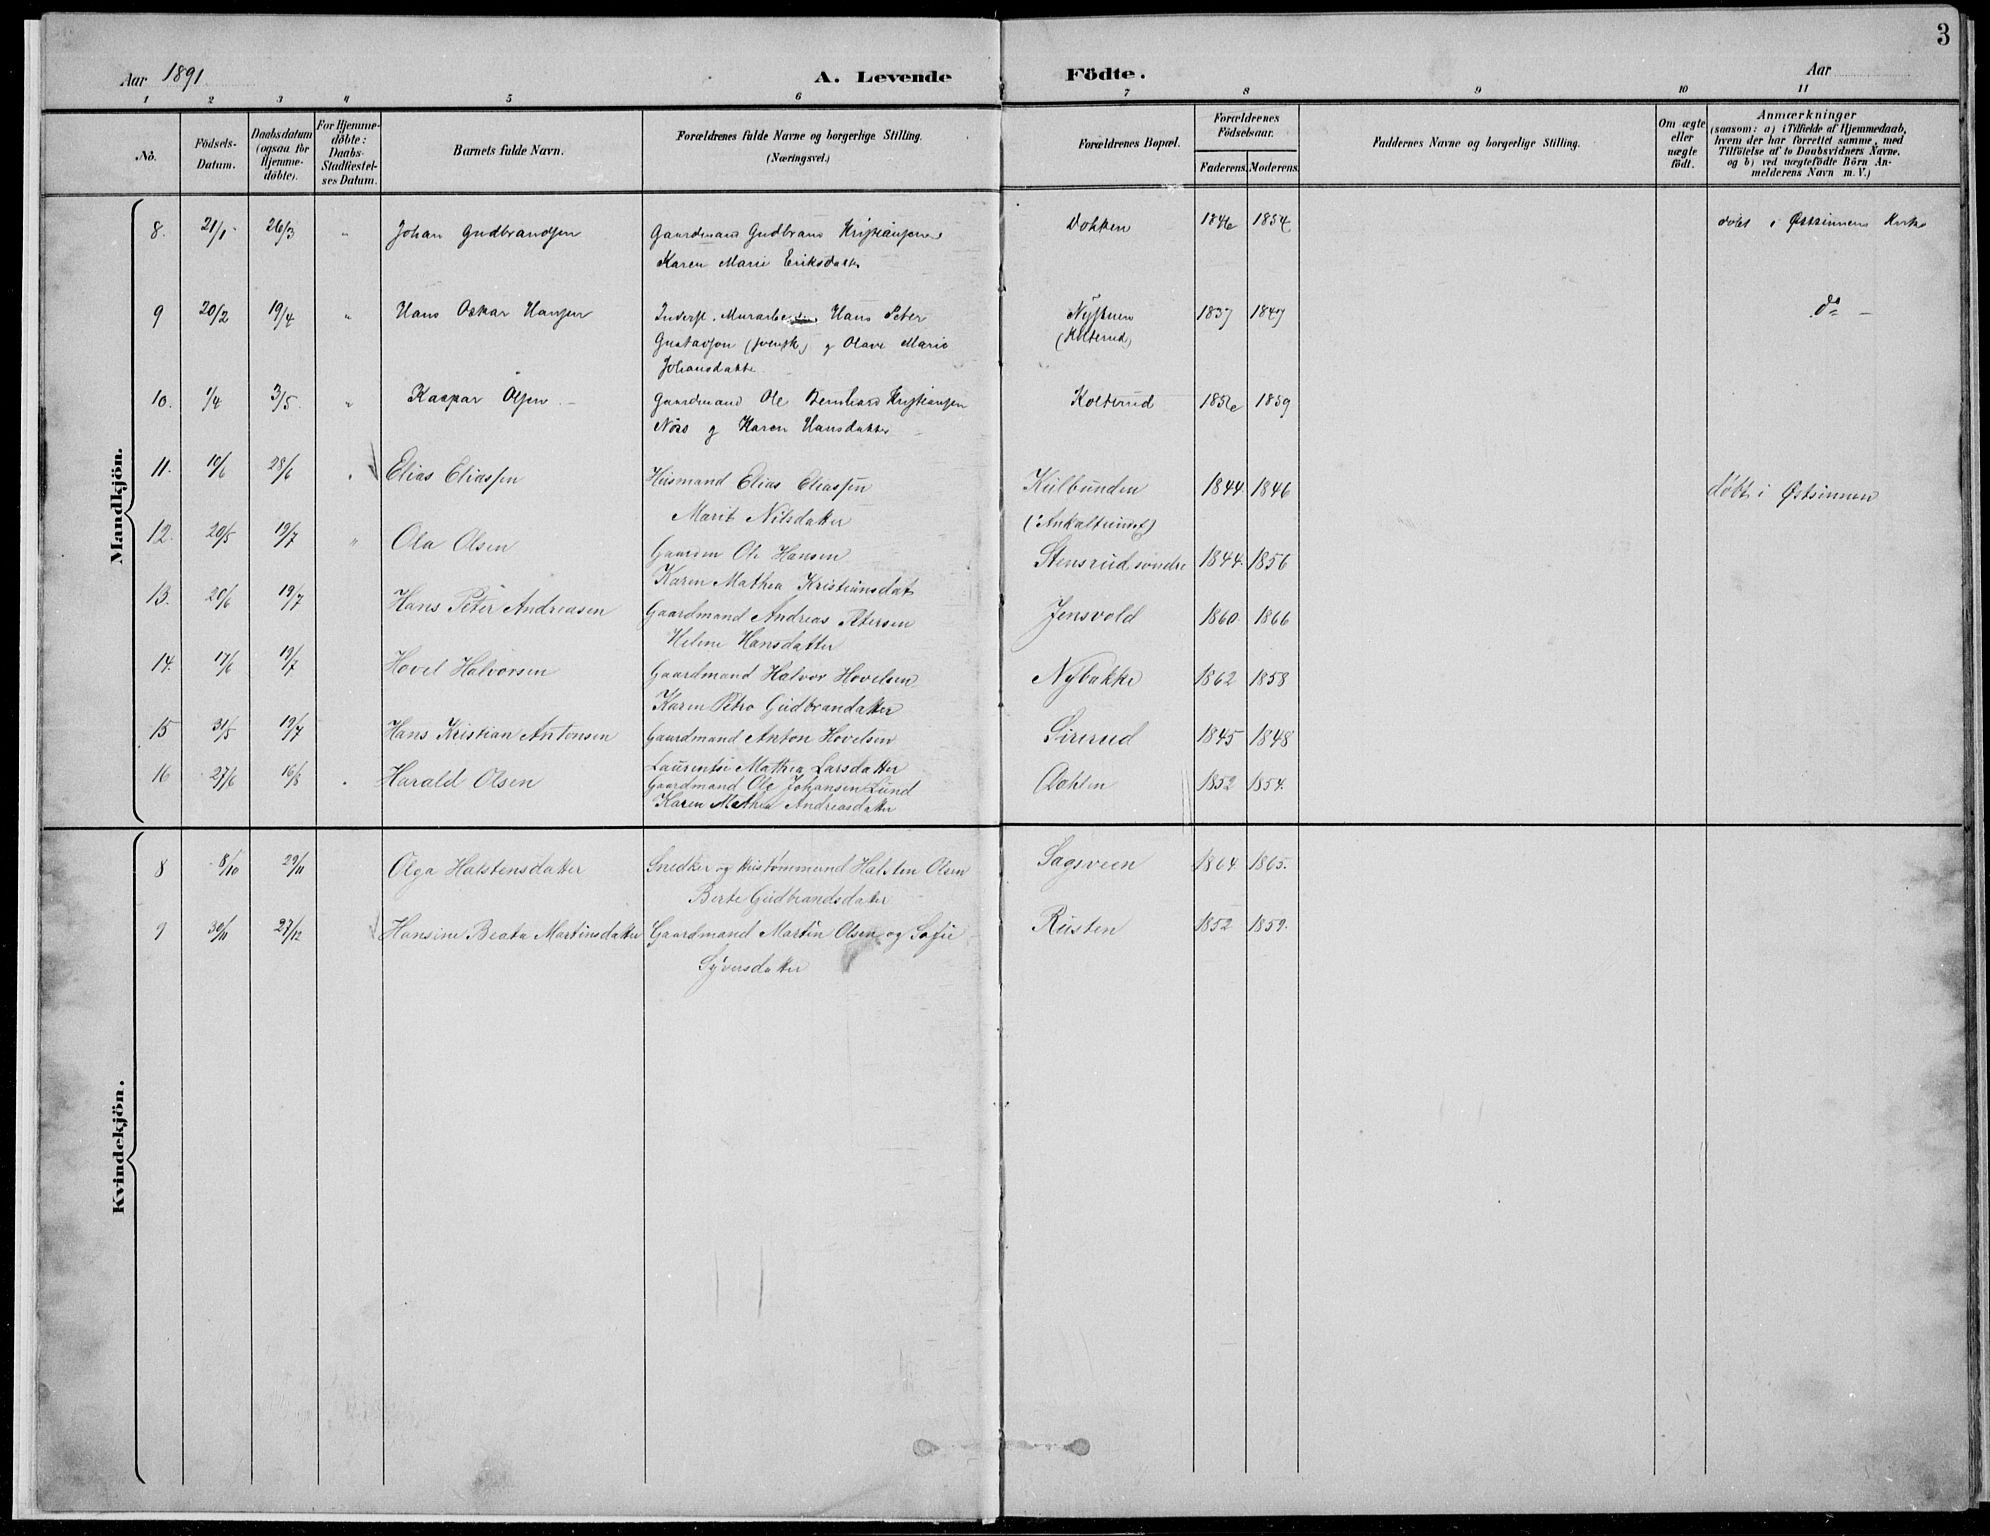 3
Aar 1891
A. Levende Födte.
Aar
1 2 3 4 5 6 7 8 9 10 11
No.
Födsels-Datum.
Daabsdatum (ogsaa for Hjemme-döbte).
For Hjemme-döbte: Daabs-Stadfæstel-ses Datum.
Barnets fulde Navn.
Forældrenes fulde Navne og borgerlige Stilling. (Næringsvei.)
Forældrenes Bopæl.
Forældrenes Födselsaar.
Faderens. Moderens.
Faddernes Navne og borgerlige Stilling.
Om ægte eller uægte födt.
Anmærkninger
(saasom: a) i Tilfælde af Hjemmedaab,
hvem der har forrettet samme, med
Tilföielse af to Daabsvidners Navne,
og b) ved uægtefödte Börn An-
melderens Navn m. V.)
Mandkjön.
8. 21/1 26/3 " Johan Gudbrandsen Gaardmand Gudbrand Kristiansen Dokken 1846 1854 døbt i Østsinnen Kirke
Karen Marie Eriksdatter
9 20/2 19/4 " Hans Oskar Hansen Inderst, Hans Peter Nystuen 1837 1849 do
Gustavsen (svensk) g Olave Marie (Kolterud)
Johansdatter
10. 1/4 3/5 " Kaspar Olsen Gaardmand Ole Bernhard Kristiansen Kolterud 1856 1859
g Karen Hansdatter
11. 10/6 28/6 " Elias Eliassen Husmand Elias Eliassen Kulbunden 1844 1846 døbt i Østsinnen
Marit Nilsdatter
12. 20/5 19/7 " Ola Olsen Gaardm Ole Hansen Stensrud søndre 1844 1856
Karen Mathea Kristiansdat
13. 20/6 19/7 Hans Peter Andreasen Gaardmand Andreas Petersen Jensvold 1860 1866
Helene Hansdatter
14. 17/6 19/7 Hovel Halvorsen Gaardmand Halvor Hovelsen Nybakke 1862 1858
Karen Petro Gudbrandatter
15 31/5 19/7 Hans Kristian Antonsen Gaardmand Anton Hovelsen Sirerud 1845 1848
Laurentse Mathea Larsdatter
16 27/6 16/8 " Harald Olsen Gaardmand Ole Johansen Lund Dahlen 1852 1854.
Karen Mathea Andreasdatter
Kvindekjön.
8 8/10 29/11 Olga Halstensdatter Snedker og Halsten Olsen Sagsveen 1864 1865.
Berte Gudbrandsdatter
9 30/11 27/12 Hansine Beata Martinsdatter Gaardmand Martin Olsen og Sofie Rusten 1852 1859.
Syversdatter